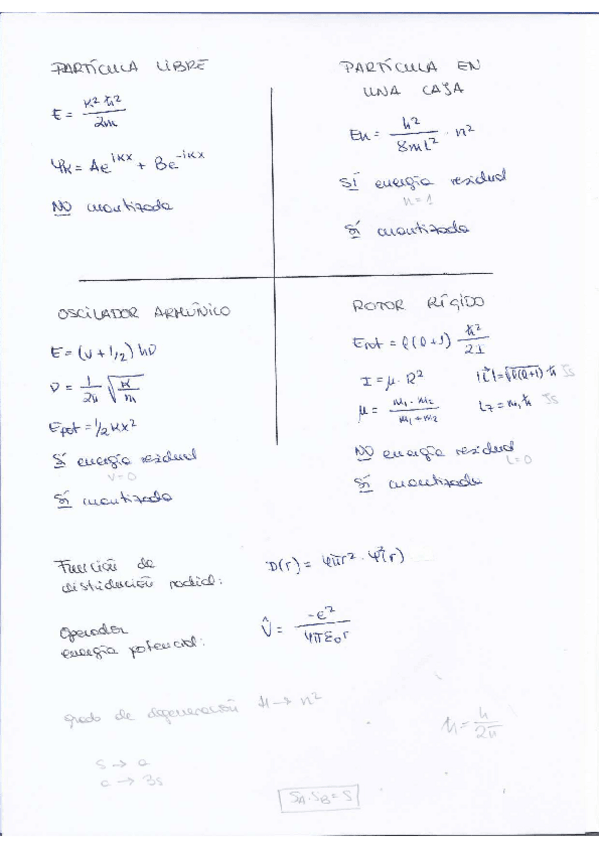 PARTÍCULA LIBRE
E = K² ħ² / 2m
Ψk = Ae^iKx + Be^-iKx
NO cuantizada
PARTÍCULA EN
UNA CAJA
En = h² / 8mL² · n²
SÍ energía residual
n=1
SÍ cuantizada
OSCILADOR ARMÓNICO
E = (v + 1/2) hν
ν = 1/2π √K/m
Epot = 1/2 Kx²
SÍ energía residual
v=0
SÍ cuantizada
ROTOR RÍGIDO
Erot = l(l+1) ħ²/2I
I = μ · R²
|L⃗| = √l(l+1) · ħ Js
μ = m₁ · m₂ / m₁ + m₂
Lz = mₗ ħ Js
NO energía residual
L=0
SÍ cuantizada
Función de
distribución radial:
D(r) = 4πr² · Ψ²(r)
Operador
energía potencial:
V̂ = -e² / 4πε₀r
grado de degeneración H → n²
ħ = h / 2π
S → a
a → Bs
SA · SB = S